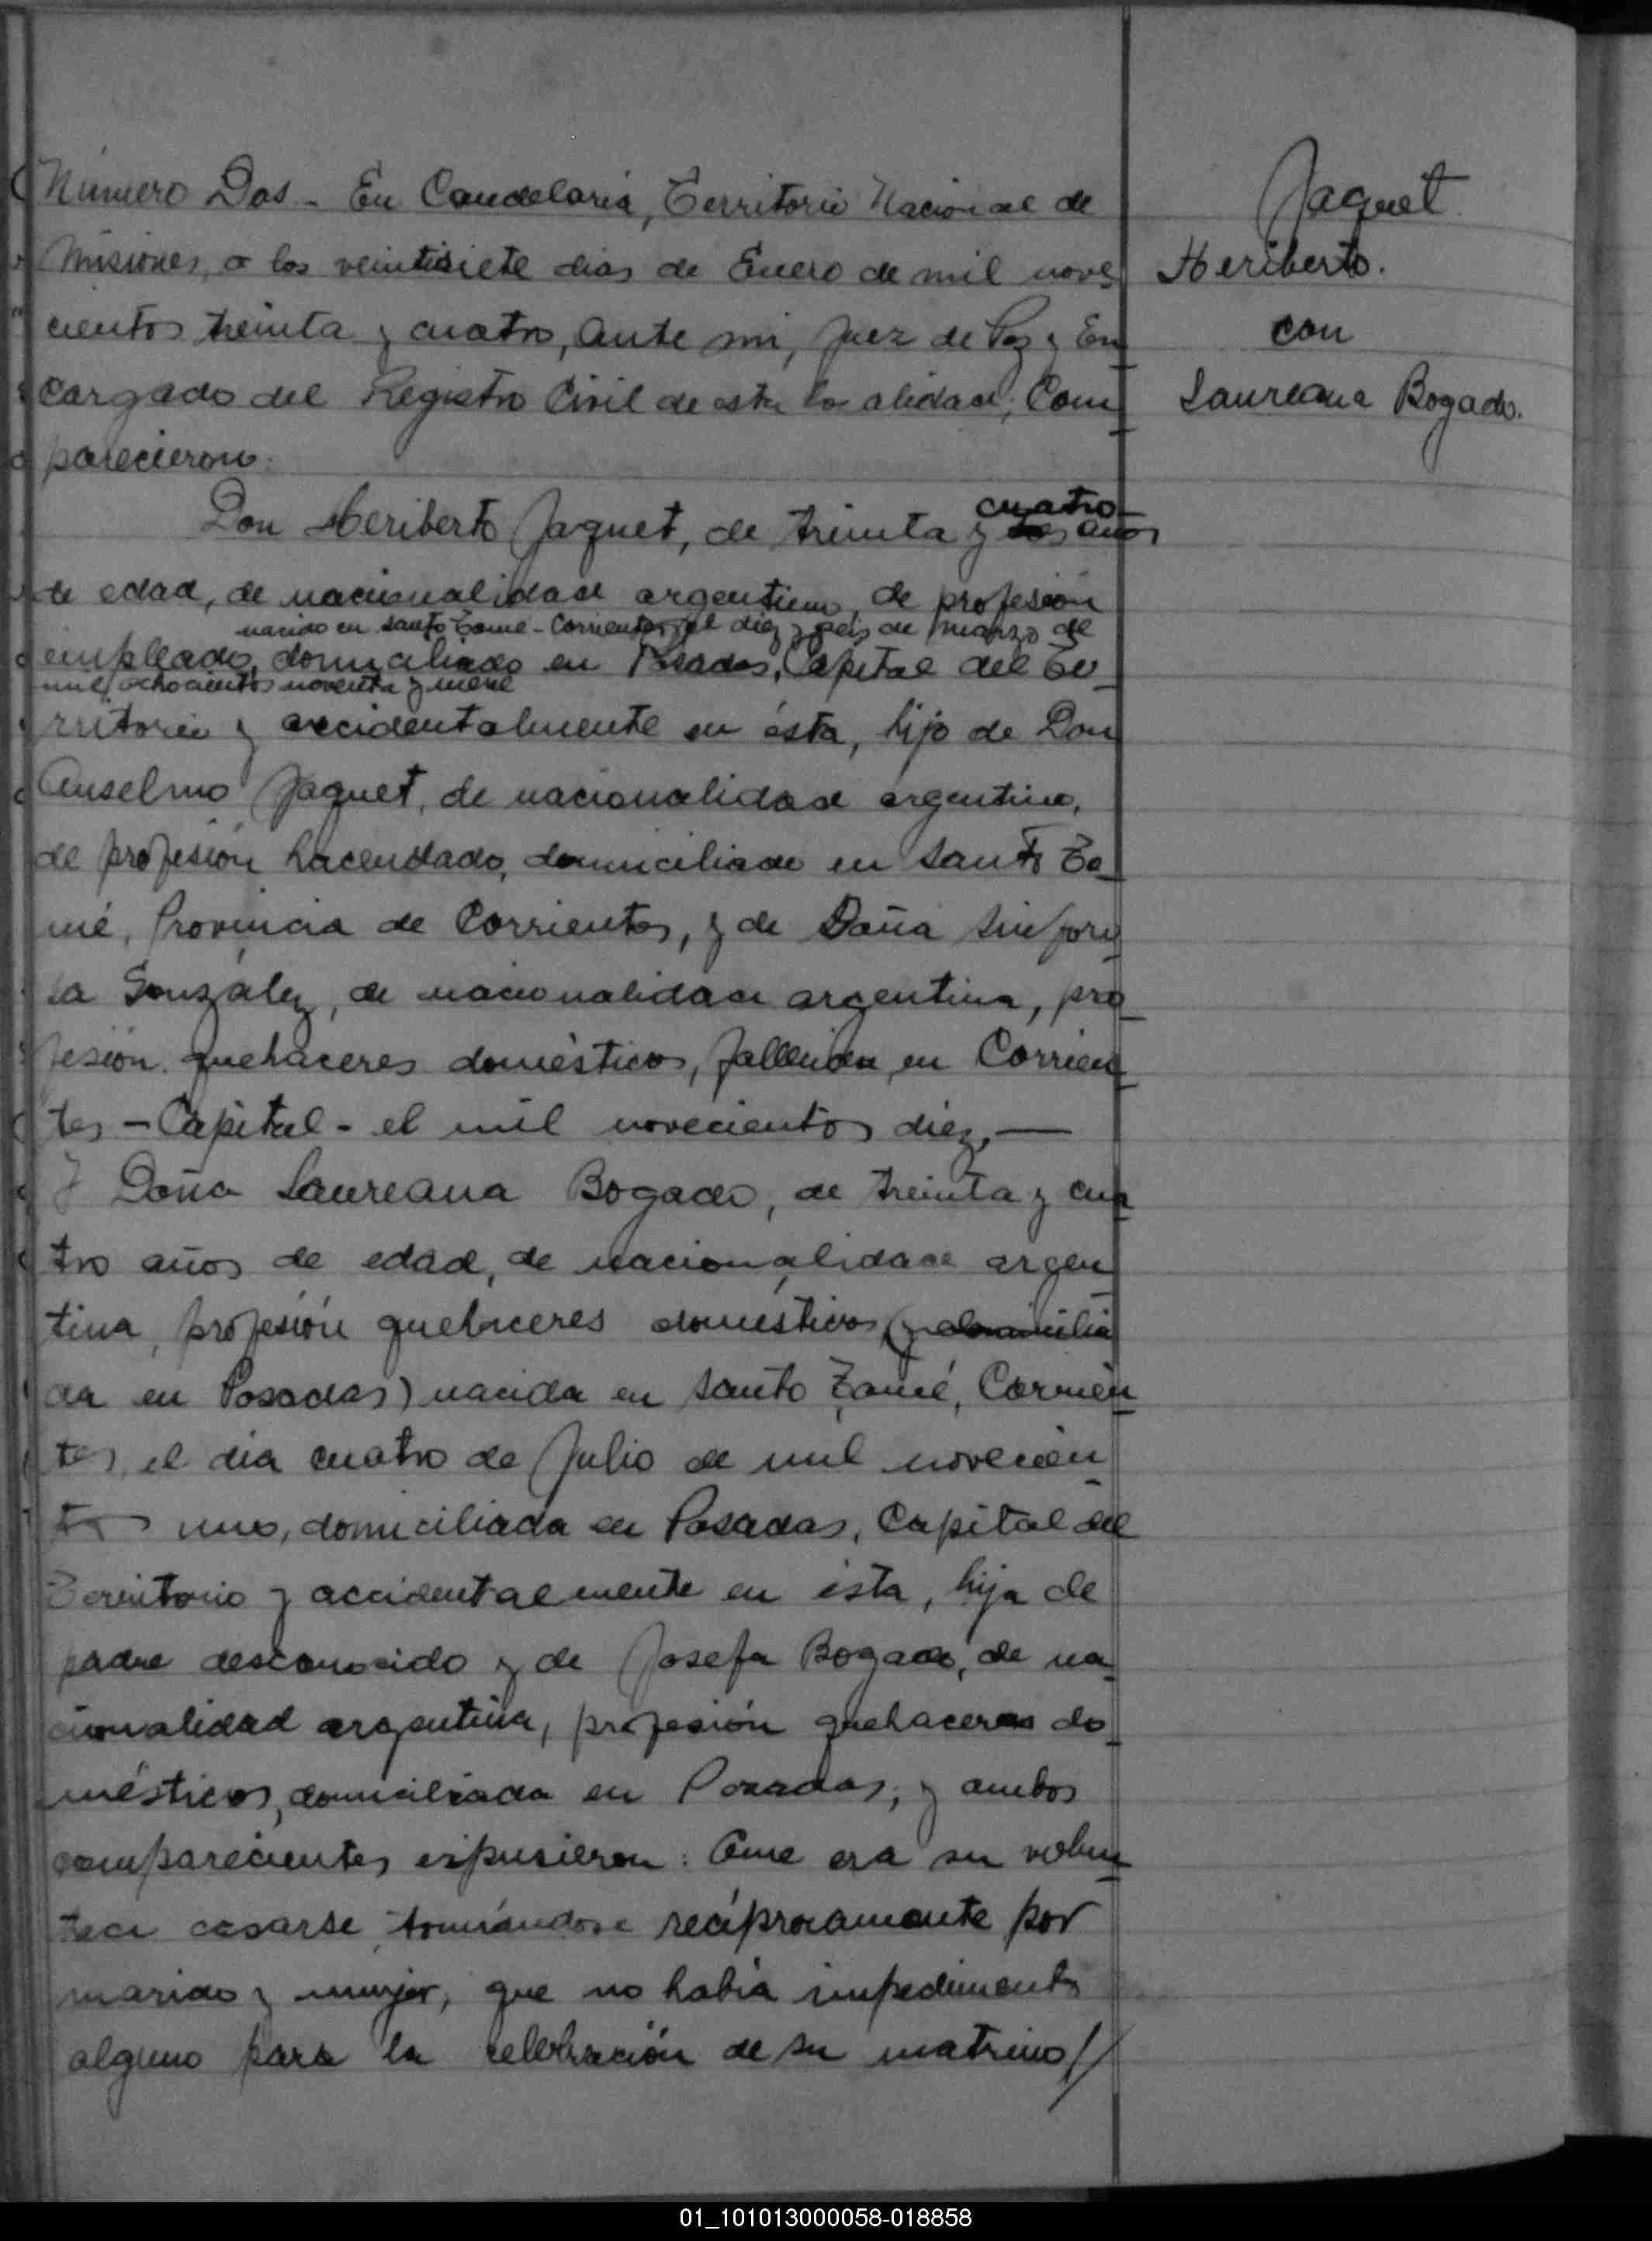 Número Dos - En Candelaria, Territorio Nacional de
Misiones, a los veintisiete dias de Enero de mil nove
cientos treinta y cuatro, ante mi, Juez de Paz y En
cargado del Registro Civil de esta localidad, Com
parecieron:
Don Heriberto Jaquet, de treinta y cuatro años
de edad, de nacionalidad argentino, de profesión
nacido en Santo Tomé - Corrientes, el diez y seis de marzo de
empleado, domiciliado en Posadas, Capital del Te
mil ochocientos noventa y nueve
rritorio y accidentalmente en ésta, hijo de Don
Anselmo Jaquet, de nacionalidad argentino,
de profesión hacendado, domiciliado en Santo To
mé, Provincia de Corrientes, y de Doña Sinforo
sa González, de nacionalidad argentina, pro
fesión quehaceres domésticos, fallecida en Corrien
tes - Capital - el mil novecientos diez. —
Y Doña Laureana Bogado, de treinta y cua
tro años de edad, de nacionalidad argen
tina, profesión quehaceres domésticos, (y domicilia
da en Posadas) nacida en Santo Tomé, Corrien
tes, el día cuatro de Julio de mil novecien
tos uno, domiciliada en Posadas, Capital del
Territorio y accidentalmente en ésta, hija de
padre desconocido y de Josefa Bogado, de na
cionalidad argentina, profesión quehaceres do
mésticos, domiciliada en Posadas; y ambos
comparecientes expusieron: Que era su volun
tad casarse, tomándose recíprocamente por
marido y mujer, que no había impedimento
alguno para la celebración de su matrimo//
Jaquet
Heriberto.
con
Laureana Bogado.
01_101013000058-018858